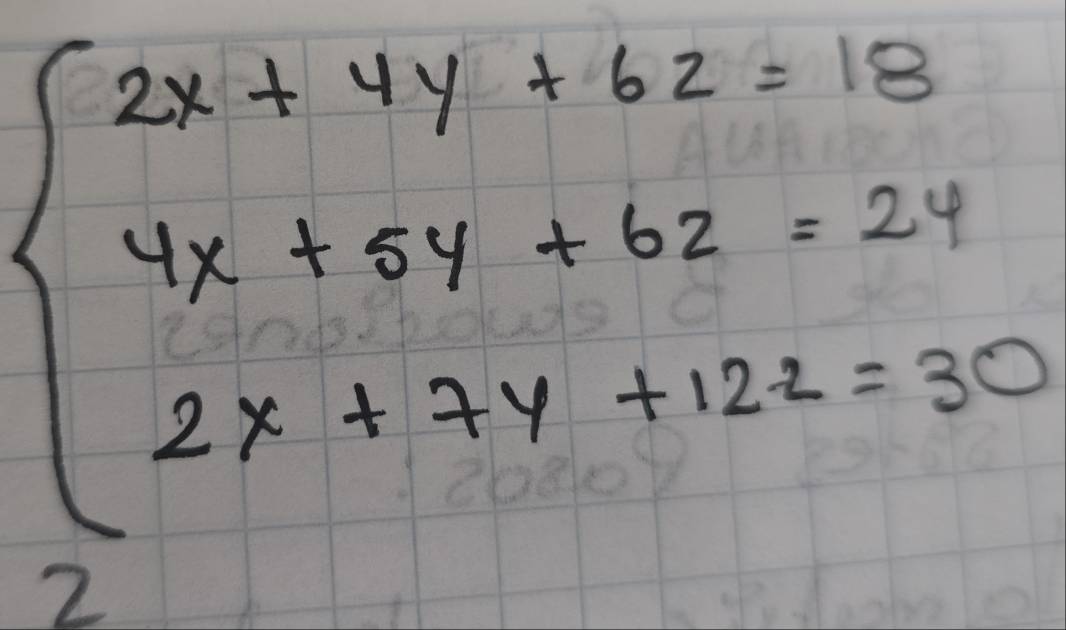 2x + 4y + 6z = 18
4x + 5y + 6z = 24
2x + 7y + 12z = 30
2